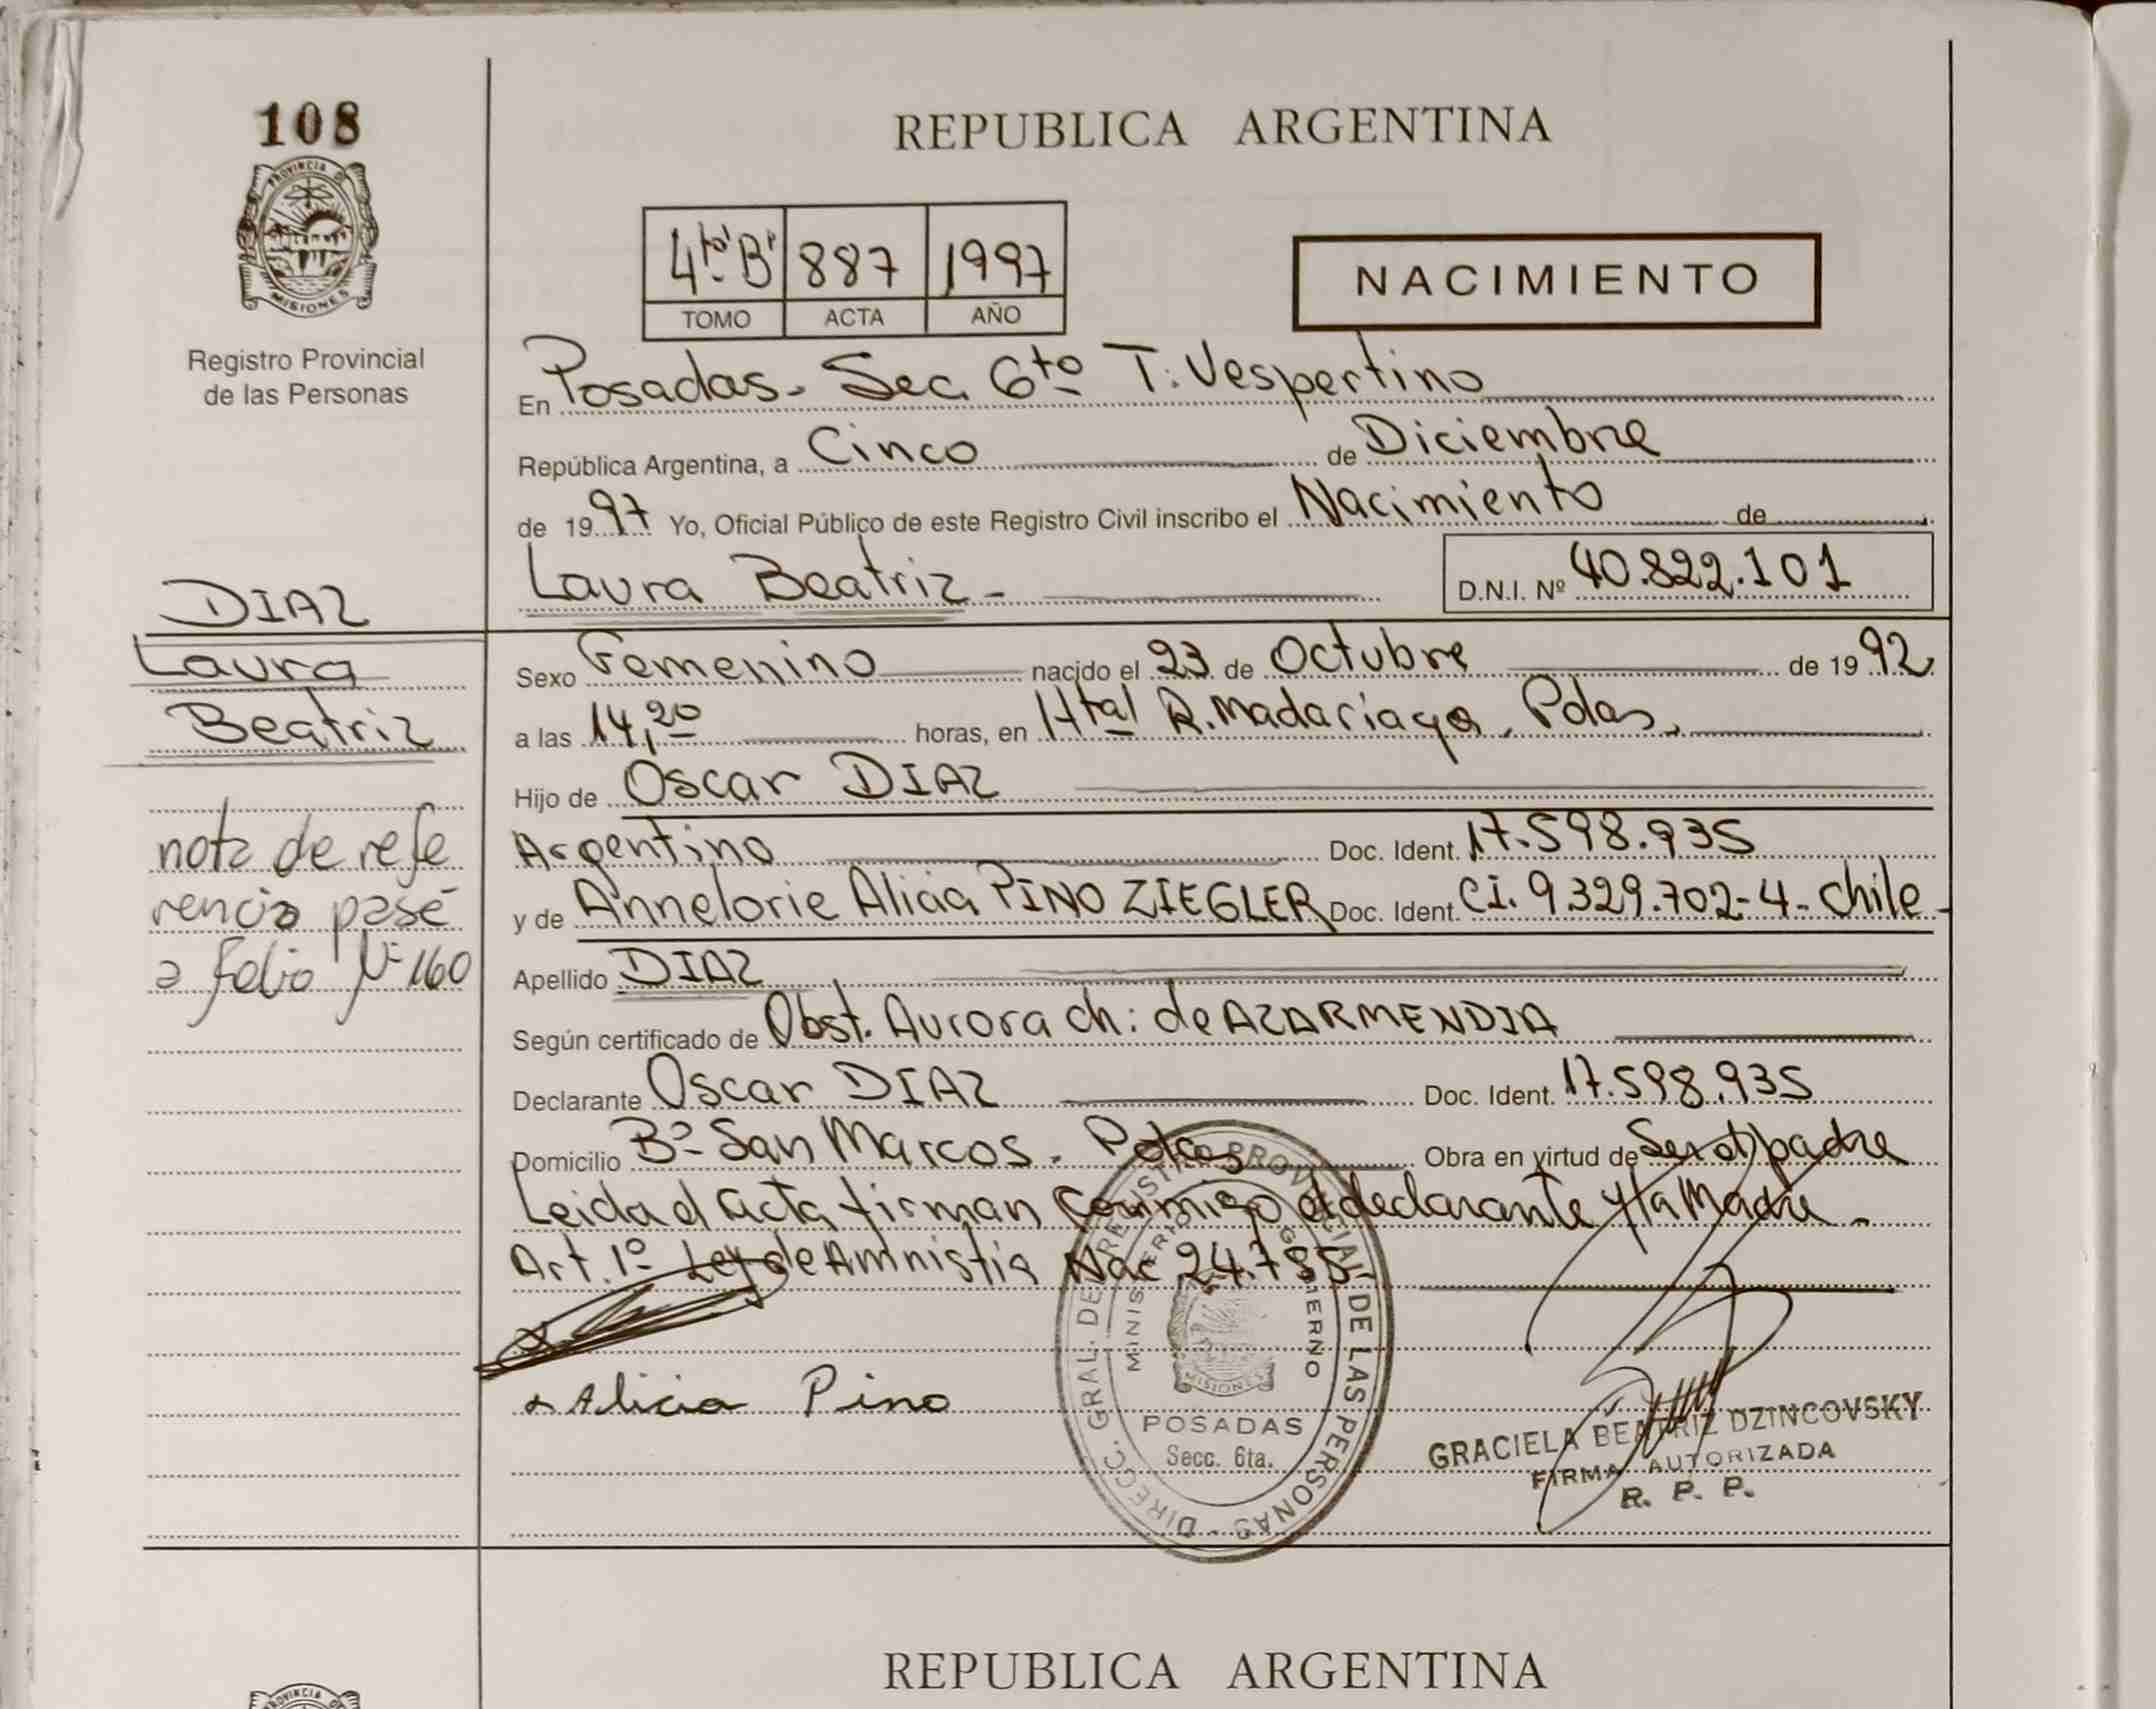 108
PROVINCIA D
MISIONES
Registro Provincial
de las Personas
REPUBLICA ARGENTINA
4to B' 887 1997
TOMO ACTA AÑO
NACIMIENTO
En Posadas. Sec. 6to T. Vespertino
República Argentina, a Cinco de Diciembre
de 1997 Yo, Oficial Público de este Registro Civil inscribo el Nacimiento de
Laura Beatriz - D.N.I. Nº 40.822.101
DIAZ
Laura
Beatriz
nota de refe
rencia pasé
a folio Nº 160
Sexo Femenino nacido el 23 de Octubre de 1992
a las 14,20 horas, en Htal R. Madariaga, Pdas.
Hijo de Oscar DIAZ
Argentino Doc. Ident. 17.598.935
y de Annelorie Alicia PINO ZIEGLER Doc. Ident. CI. 9.329.702-4- Chile -
Apellido DIAZ
Según certificado de Obst. Aurora Ch: de AZARMENDIA
Declarante Oscar DIAZ Doc. Ident. 17.598.935
Domicilio Bº San Marcos. Pdas Obra en virtud de Ser el padre
Leida el acta firman conmigo el declarante y la Madre -
Art. 1º Ley de Amnistia Nac 24.755-
Alicia Pino
DIRECC. GRAL. DE REGISTRO PROVINCIAL DE LAS PERSONAS
MINISTERIO GOBIERNO
MISIONES
POSADAS
Secc. 6ta.
GRACIELA BEATRIZ DZINCOVSKY
FIRMA AUTORIZADA
R. P. P.
REPUBLICA ARGENTINA
PROVINCIA D